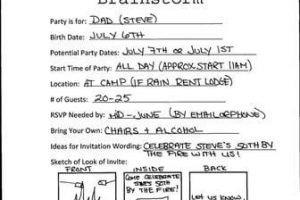 Brainstorm
Party is for: DAD (STEVE)
Birth Date: JULY 6TH
Potential Party Dates: JULY 7TH OR JULY 1ST
Start Time of Party: ALL DAY (APPROX START 11AM)
Location: AT CAMP (IF RAIN RENT LODGE)
# of Guests: 20-25
RSVP Needed by: MID-JUNE (BY EMAIL OR PHONE)
Bring Your Own: CHAIRS + ALCOHOL
Ideas for Invitation Wording: CELEBRATE STEVE'S 50TH BY
THE FIRE WITH US!
Sketch of Look of Invite:
FRONT INSIDE BACK
COME CELEBRATE
STEVE'S 50TH
BY THE FIRE!
LET US KNOW